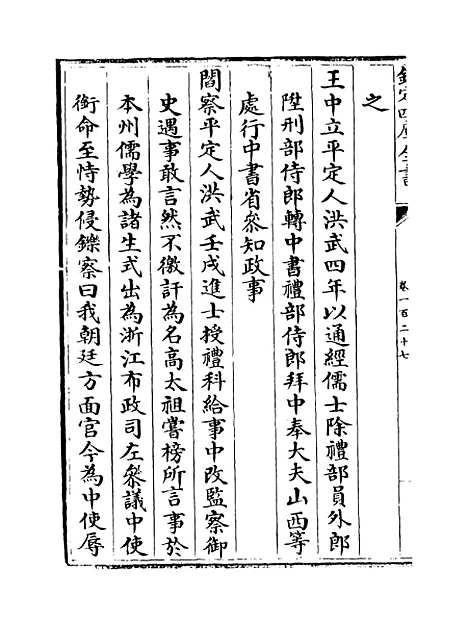 欽定四庫全書
卷一百二十七
之
王中立平定人洪武四年以通經儒士除禮部員外郎
陞刑部侍郎轉中書禮部侍郎拜中奉大夫山西等
處行中書省叅知政事
閻察平定人洪武壬戌進士授禮科給事中改監察御
史遇事敢言然不徼訐為名高太祖嘗榜所言事於
本州儒學為諸生式出為浙江布政司左叅議中使
銜命至恃勢侵鑠察曰我朝廷方面官今為中使辱